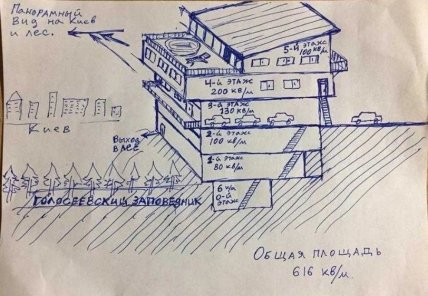 Панорамный
вид на Киев
и лес.
5-й этаж
100 кв/м
4-й этаж
200 кв/м
3-й этаж
130 кв/м
Киев
2-й этаж
100 кв/м
Выход
в лес
1-й этаж
80 кв/м
Голосеевский заповедник
6 к/м
0-й этаж
Общая площадь
616 кв/м.